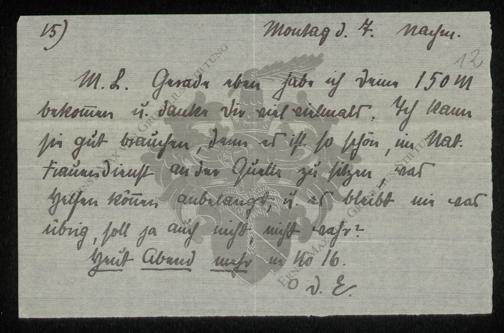 15) Montag d. 7. Nachm.
12
M. L. Gerade eben habe ich deine 150 M
bekommen u. danke dir viel vielmals. Ich kann
sie gut brauchen, denn es ist so schön, im Nat.
Frauendienst an der Quelle zu sitzen, was
Helfen können anbelangt, u. es bleibt nie was
übrig, soll ja auch nicht nicht wahr?
Heut Abend mehr in No 16.
D. E.